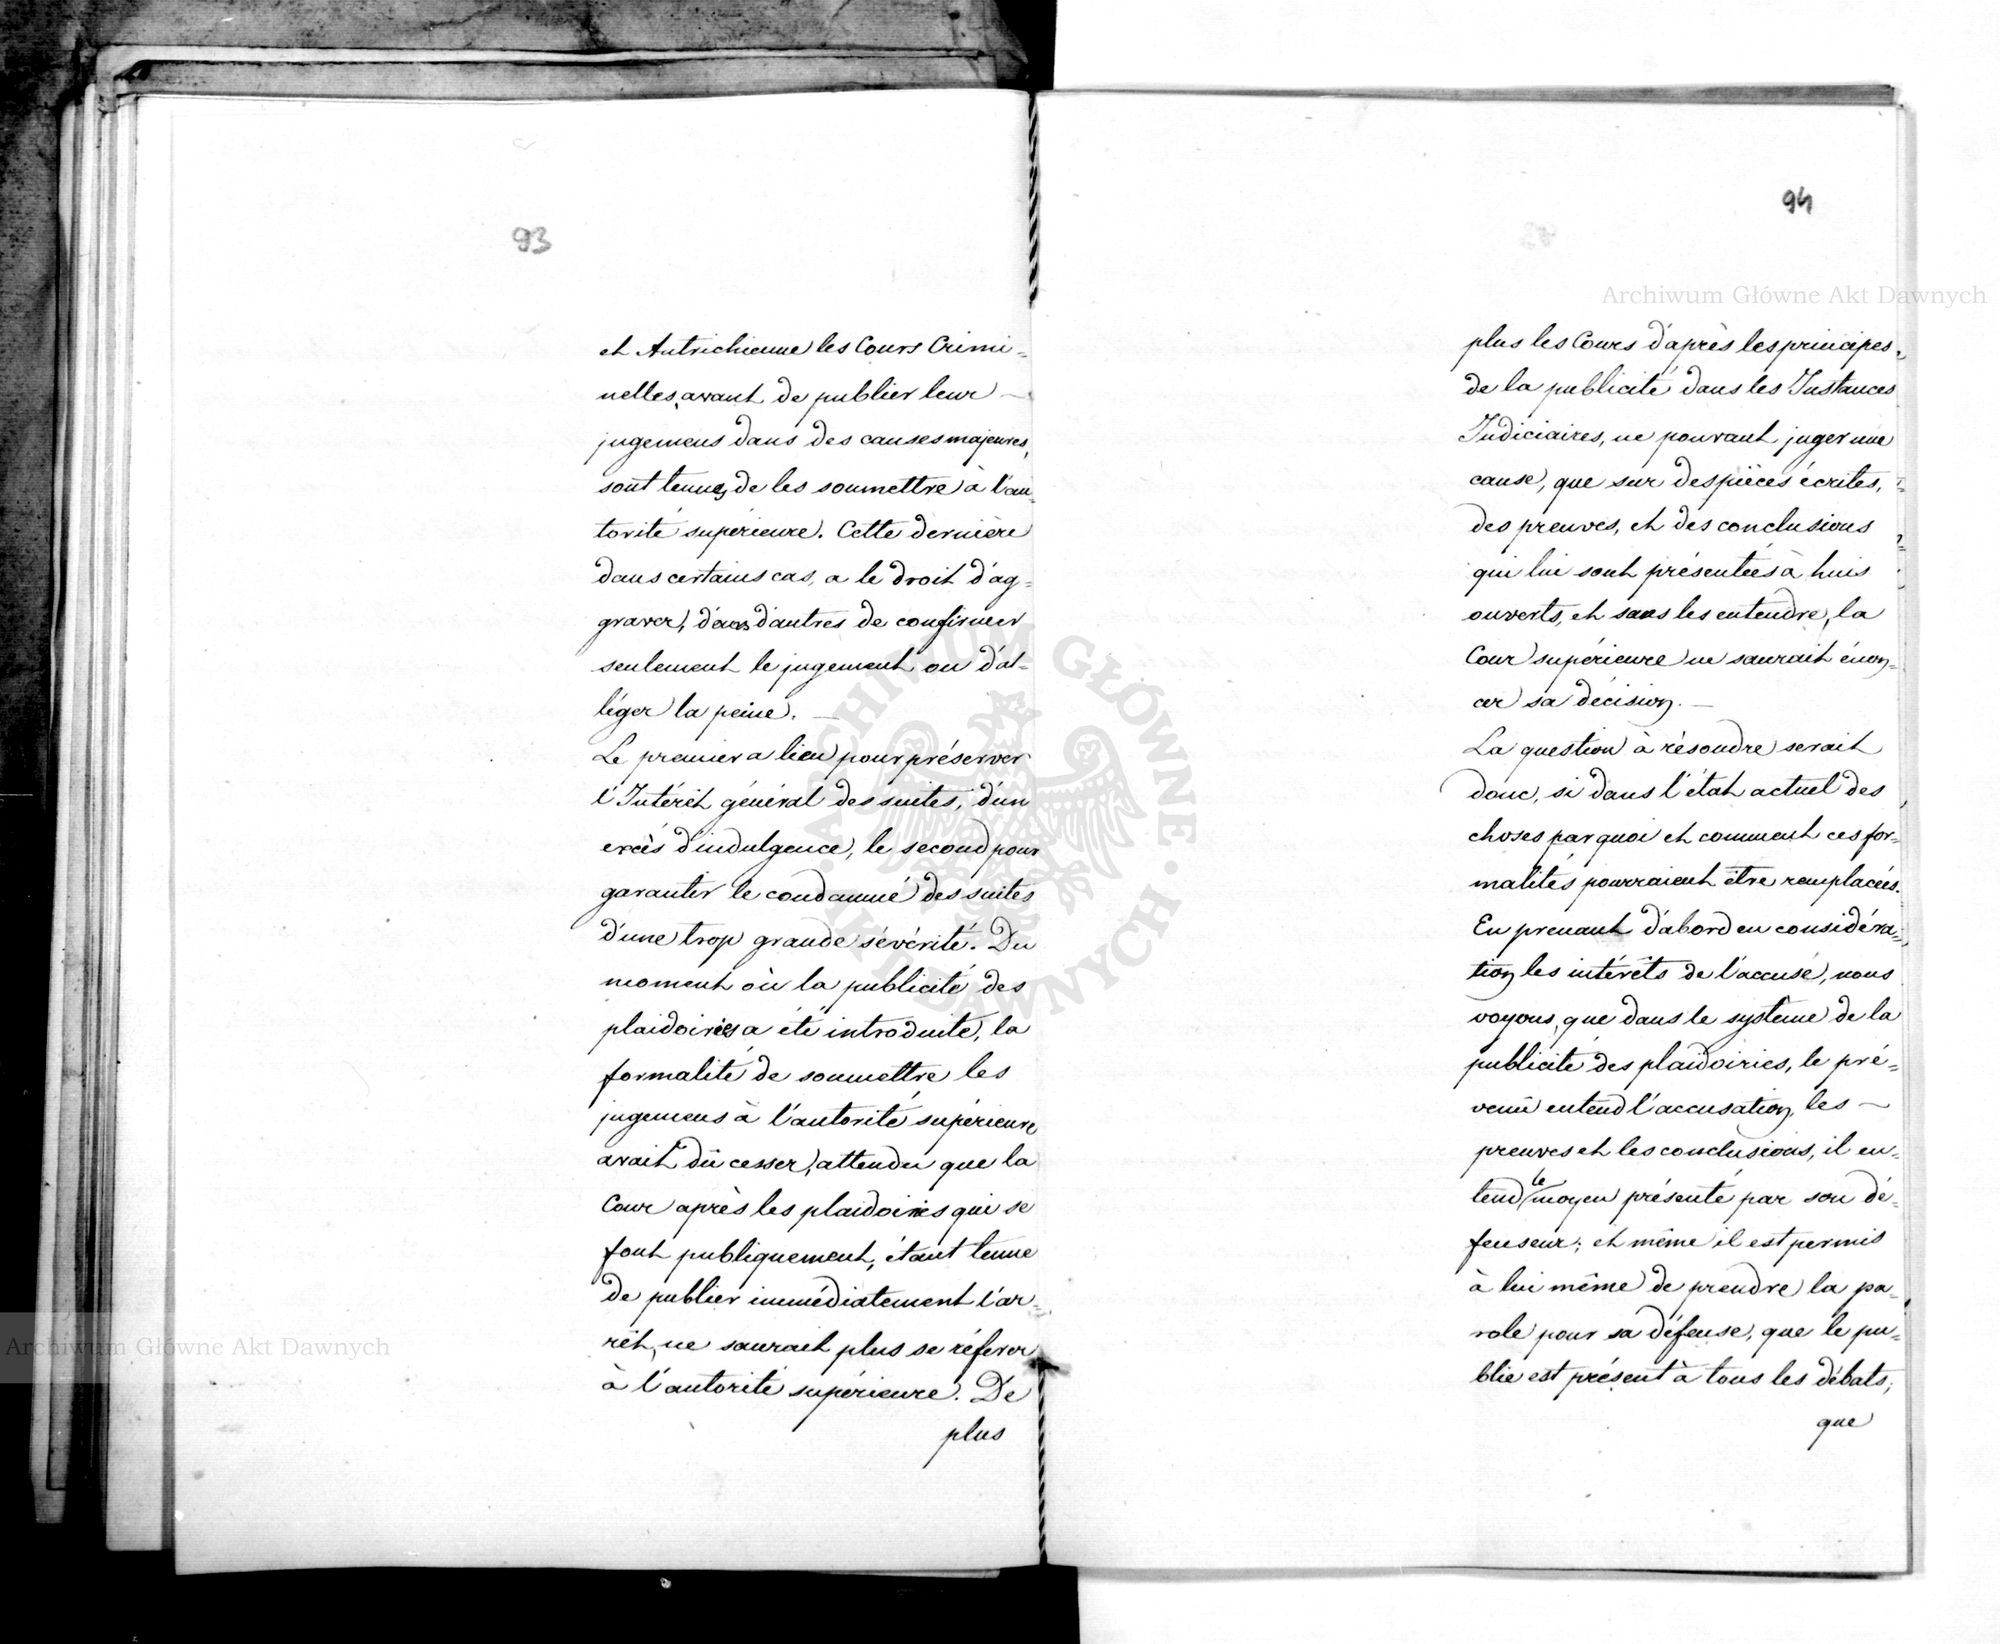 93
et Autrichienne les Cours Crimi=
nelles, avant de publier leur —
jugemens dans des causes majeures,
sont tenues, de les soumettre à l'au
torité supérieure. Cette dernière
dans certains cas, a le droit d'ag=
graver, dans d'autres de confirmer
seulement le jugement ou d'al=
léger la peine. —
Le premier a lieu pour préserver
l'Intérêt général des suites, d'un
excès d'indulgence, le second pour
garantir le condamné des suites
d'une trop grande sévérité. Du
moment où la publicité des
plaidoiries a été introduite, la
formalité de soumettre les
jugemens à l'autorité supérieure
avait dû cesser, attendu que la
Cour après les plaidoiries qui se
font publiquement, étant tenue
de publier immédiatement l'ar=
rêt, ne saurait plus se référer
à l'autorité supérieure. De
plus
94
plus les Cours d'après les principes
de la publicité dans les Instances
Judiciaires, ne pouvant juger une
cause, que sur des pièces écrites,
des preuves, et des conclusions
qui lui sont présentées à huis
ouverts, et sans les entendre, la
Cour supérieure ne saurait énon=
cer sa décision. —
La question à résoudre serait
donc, si dans l'état actuel des
choses par quoi et comment ces for=
malités pourraient être remplacées.
En prenant d'abord en considéra=
tion les intérêts de l'accusé, nous
voyons, que dans le système de la
publicité des plaidoiries, le pré=
venu entend l'accusation, les —
preuves et les conclusions, il en=
tend le moyen présenté par son dé=
fenseur; et même il est permis
à lui même de prendre la pa=
role pour sa défense, que le pu=
blic est présent à tous les débats;
que
Archiwum Główne Akt Dawnych
Archiwum Główne Akt Dawnych
ARCHIWUM GŁÓWNE AKT DAWNYCH